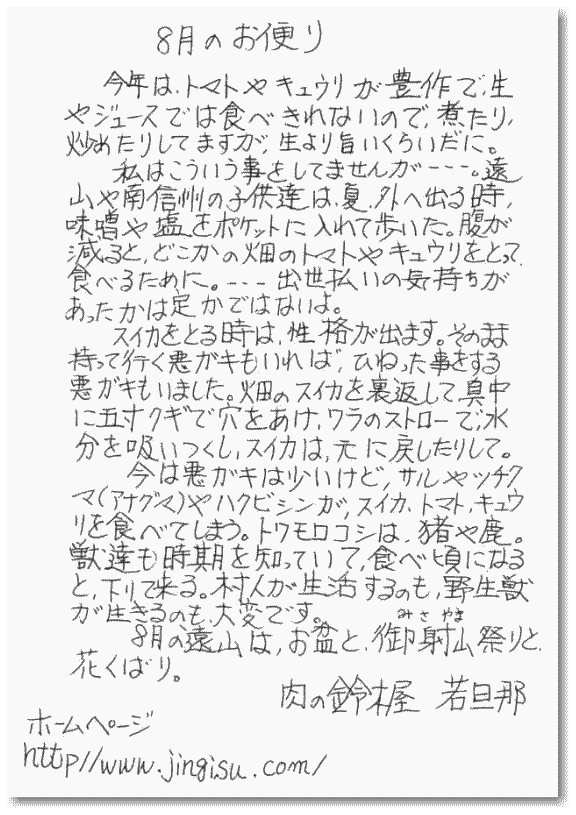 8月のお便り
今年は、トマトやキュウリが豊作で、生
やジュースでは食べきれないので、煮たり、
炒めたりしてますが、生より旨いくらいだに。
私はこういう事をしてませんが---。遠
山や南信州の子供達は、夏、外へ出る時、
味噌や塩をポケットに入れて歩いた。腹が
減ると、どこかの畑のトマトやキュウリをとって、
食べるために。--- 出世払いの気持ちが
あったかは定かではないよ。
スイカをとる時は、性格が出ます。そのまま
持って行く悪ガキもいれば、ひねった事をする
悪ガキもいました。畑のスイカを裏返して、真中
に五寸クギで穴をあけ、ワラのストローで、水
分を吸いつくし、スイカは、元に戻したりして。
今は悪ガキは少いけど、サルやツチク
マ(アナグマ)やハクビシンが、スイカ、トマト、キュウ
リを食べてしまう。トウモロコシは、猪や鹿。
獣達も時期を知っていて、食べ頃になる
と、下りて来る。村人が生活するのも、野生獣
が生きるのも、大変です。
8月の遠山は、お盆と、御射山祭りと、
みさやま
花くばり。
肉の鈴木屋 若旦那
ホームページ
http//www.jingisu.com/